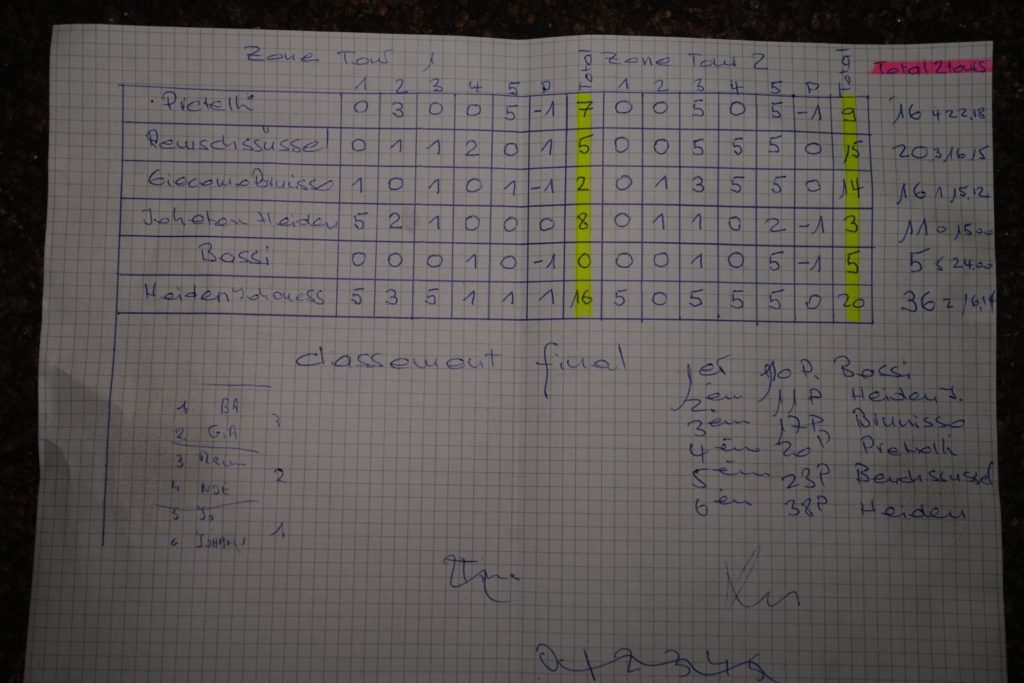 Zone Tour 1 Total Zone Tour 2 Total Total 2 tours
1 2 3 4 5 P 1 2 3 4 5 P
Pretelli 0 3 0 0 5 -1 7 0 0 5 0 5 -1 9 16 4 22,18
0 1 1 2 0 1 5 0 0 5 5 5 0 15 20 3 16,15
Giacomo Brunisso 1 0 1 0 1 -1 2 0 1 3 5 5 0 14 16 1 15,12
Heiden 5 2 1 0 0 0 8 0 1 1 0 2 -1 3 11 0 15,00
Bossi 0 0 0 1 0 -1 0 0 0 1 0 5 -1 5 5 5 24,00
Heiden Johaness 5 3 5 1 1 1 16 5 0 5 5 5 0 20 36 2 16,14
classement final
1er 10P. Bossi
2em 11P Heiden J.
3em 17P Brunisso
4em 20P Pretelli
5em 23P
6em 38P Heiden
1 BA
2 G.A
3
3 Rem
4
2
5 Jo
6
1
0 1 2 3 4 5